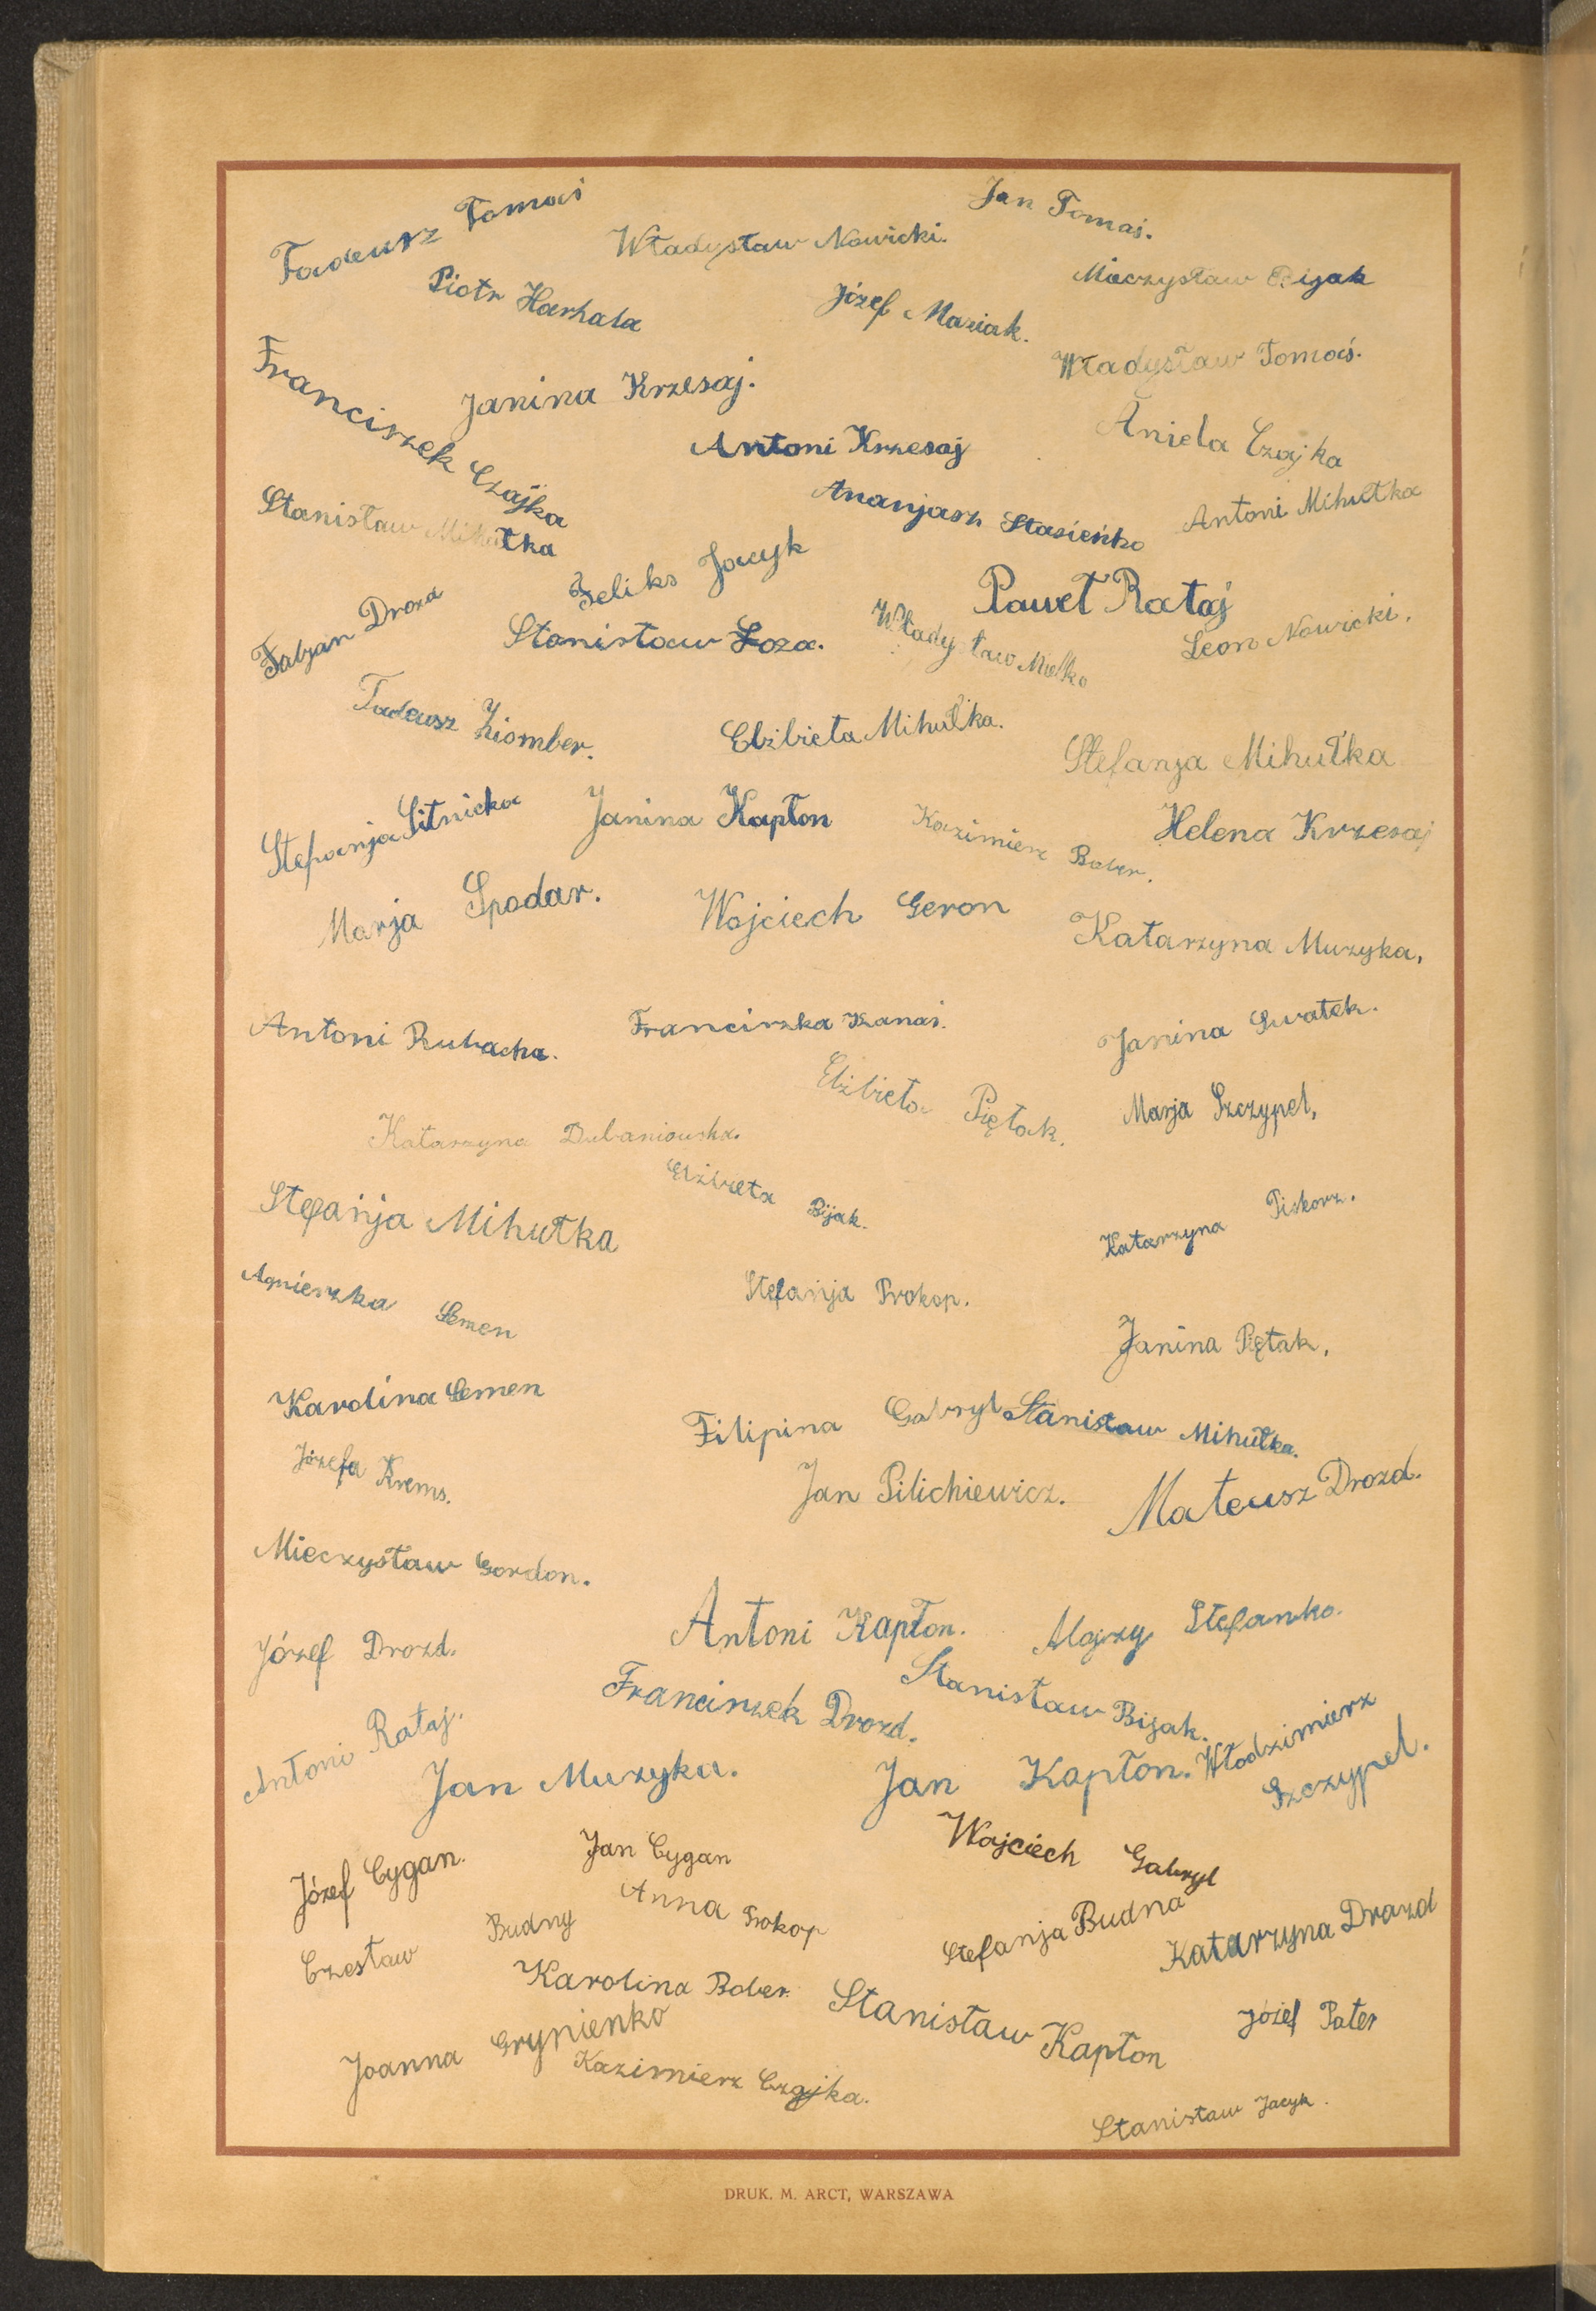 Tadeusz Tomaś
Władysław Nowicki.
Jan Tomaś.
Piotr Harhala
Józef Maziak.
Mieczysław Bijak
Franciszek Czajka
Janina Krzesaj.
Władysław Tomaś.
Antoni Krzesaj
Aniela Czajka
Stanisław Mihułka
Ananjasz Stasieńko
Antoni Mihułka
Feliks Jacyk
Paweł Rataj
Fabjan Drozd
Stanisław Łoza.
Władysław Mielko
Leon Nowicki.
Tadeusz Ziomber.
Elżbieta Mihułka.
Stefanja Mihułka
Stefanja Sitnicka
Janina Kapłon
Kazimierz Bober.
Helena Krzesaj
Marja Spodar.
Wojciech Geron
Katarzyna Muzyka,
Antoni Rubacha.
Franciszka Kanas.
Janina Swatek.
Elżbieta Piętak.
Marja Szczypel,
Katarzyna Dubaniowska.
Elżbieta Bijak.
Stefanja Mihułka
Katarzyna Piskorz.
Agnieszka Semen
Stefanja Prokop.
Janina Piętak,
Karolina Semen
Filipina Gabryl
Stanisław Mihułka.
Józefa Krems.
Jan Pilichiewicz.
Mateusz Drozd.
Mieczysław Gordon.
Antoni Kapłon.
Alojzy Stefanko.
Józef Drozd.
Franciszek Drozd.
Stanisław Bijak.
Antoni Rataj.
Jan Muzyka.
Jan Kapłon.
Włodzimierz
Szczypel.
Józef Cygan.
Jan Cygan
Wojciech Gabryl
Czesław Budny
Anna Prokop
Stefanja Budna
Katarzyna Drozd
Karolina Bober.
Stanisław Kapłon
Józef Pater
Joanna Grynienko
Kazimierz Czajka.
Stanisław Jacyk.
DRUK. M. ARCT, WARSZAWA